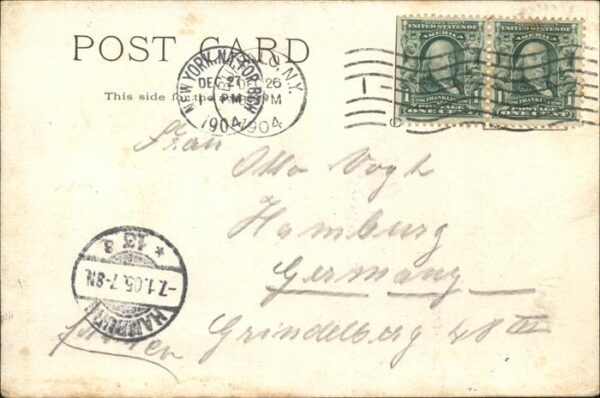 POST CARD
NEW YORK, N.Y.
DEC 27
PM
1904
N.Y.
26
PM
1904
This side for the
UNITED STATES OF AMERICA
FRANKLIN
ONE CENT
UNITED STATES OF AMERICA
FRANKLIN
1
ONE CENT
Frau
Otto Vogt
Hamburg
Germany
Grindelberg 48 III
* 13 a
-7.1.05.7-8N.
HAMBURG